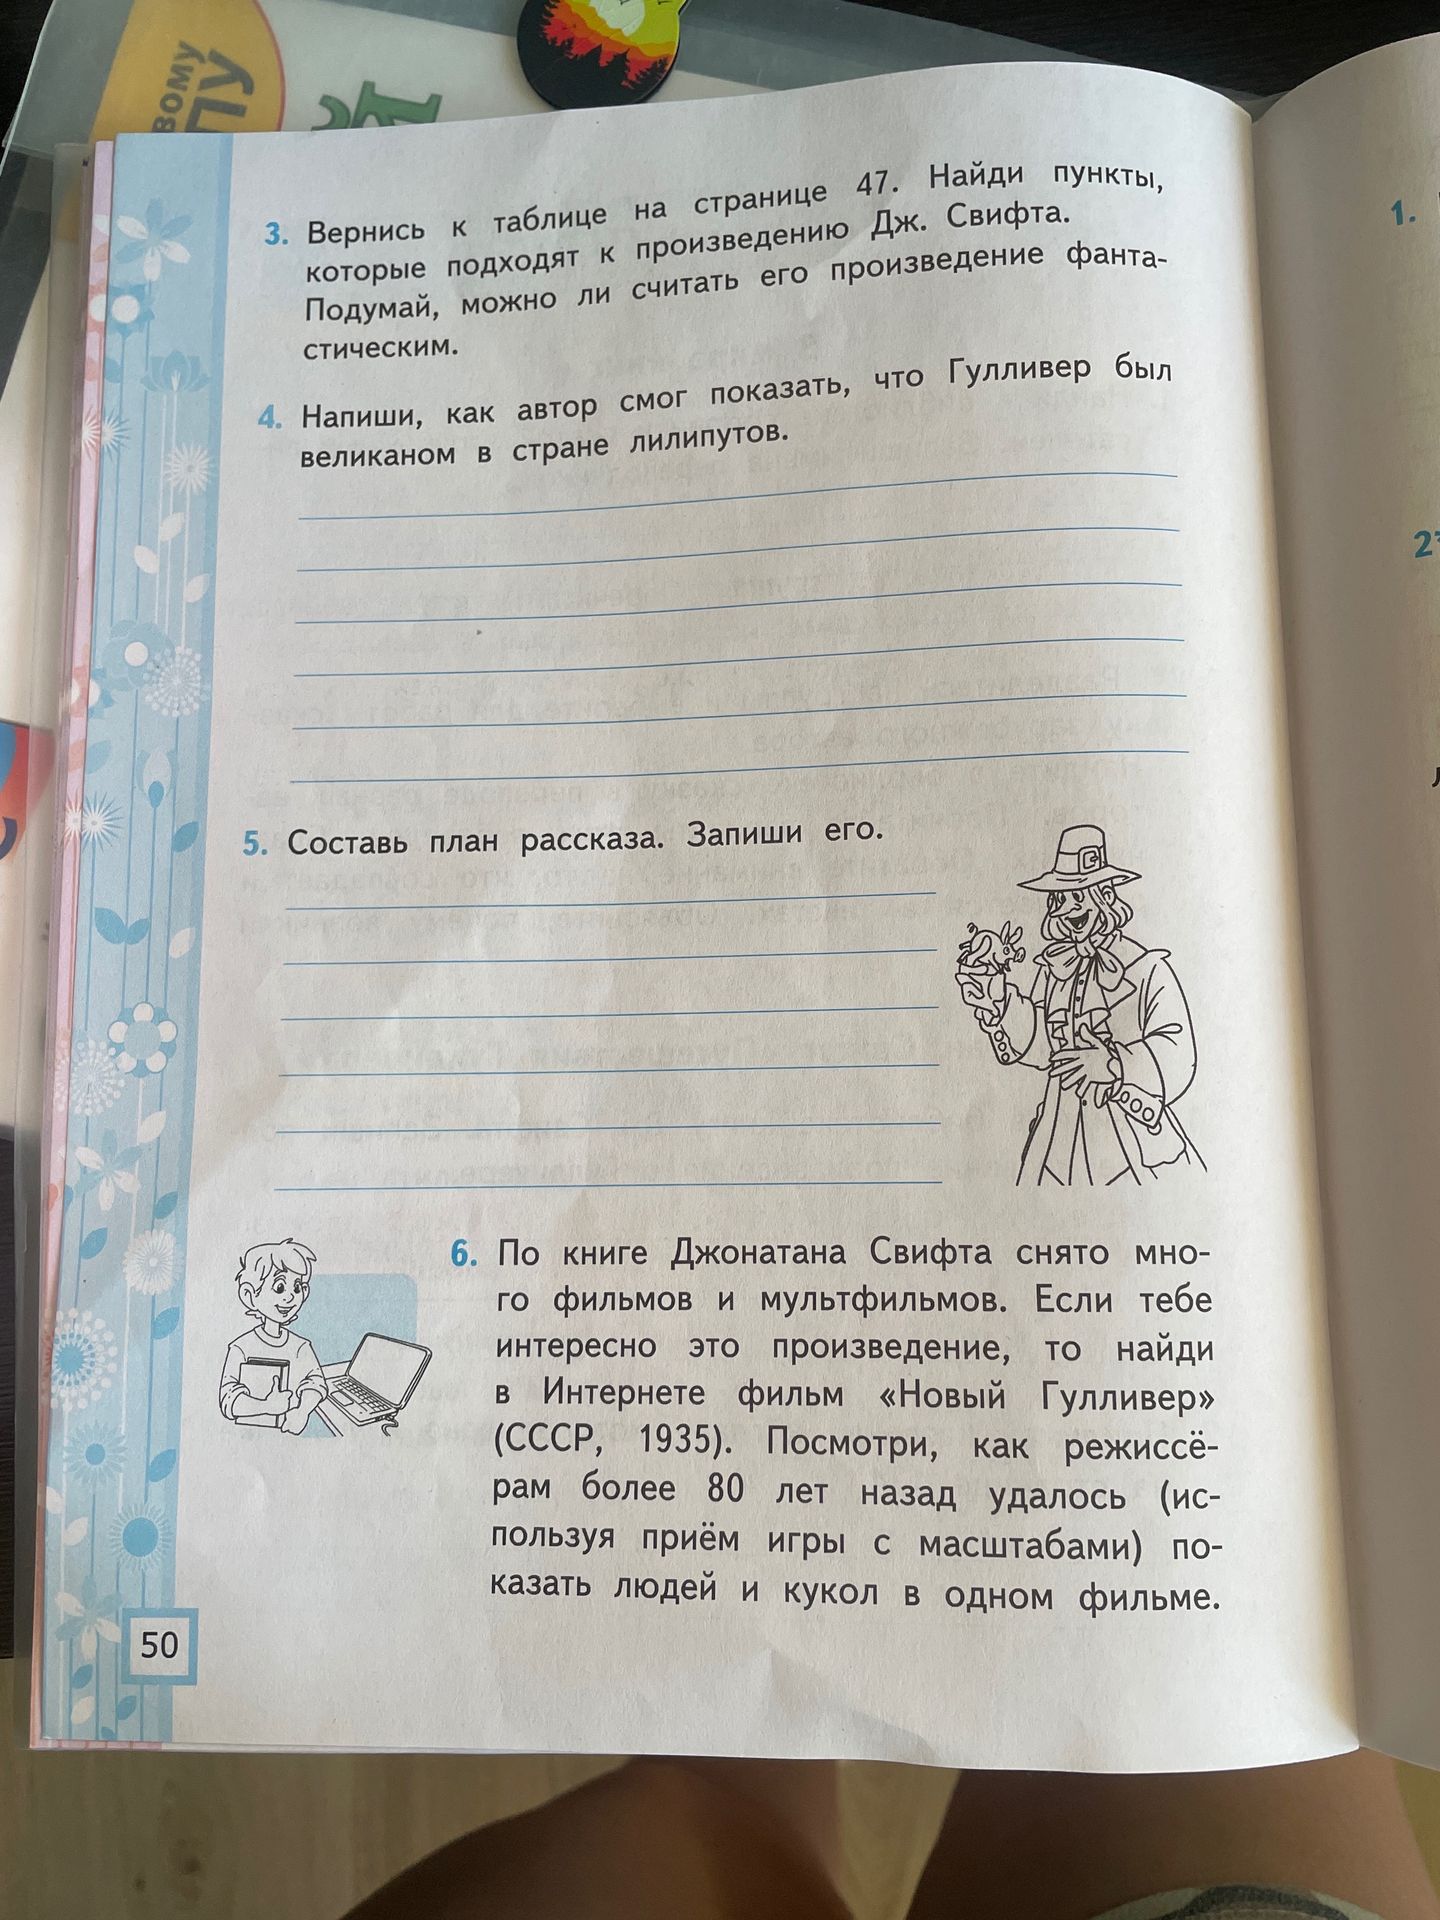 вому
ПУ
Й
3. Вернись к таблице на странице 47. Найди пункты,
которые подходят к произведению Дж. Свифта.
Подумай, можно ли считать его произведение фанта-
стическим.
4. Напиши, как автор смог показать, что Гулливер был
великаном в стране лилипутов.
5. Составь план рассказа. Запиши его.
6. По книге Джонатана Свифта снято мно-
го фильмов и мультфильмов. Если тебе
интересно это произведение, то найди
в Интернете фильм «Новый Гулливер»
(СССР, 1935). Посмотри, как режиссё-
рам более 80 лет назад удалось (ис-
пользуя приём игры с масштабами) по-
казать людей и кукол в одном фильме.
50
1.
2*